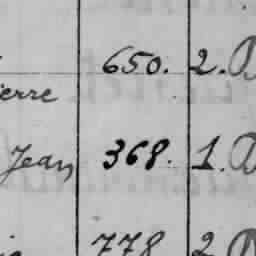 650. 2.
ierre
Jean 368. 1.
778 2